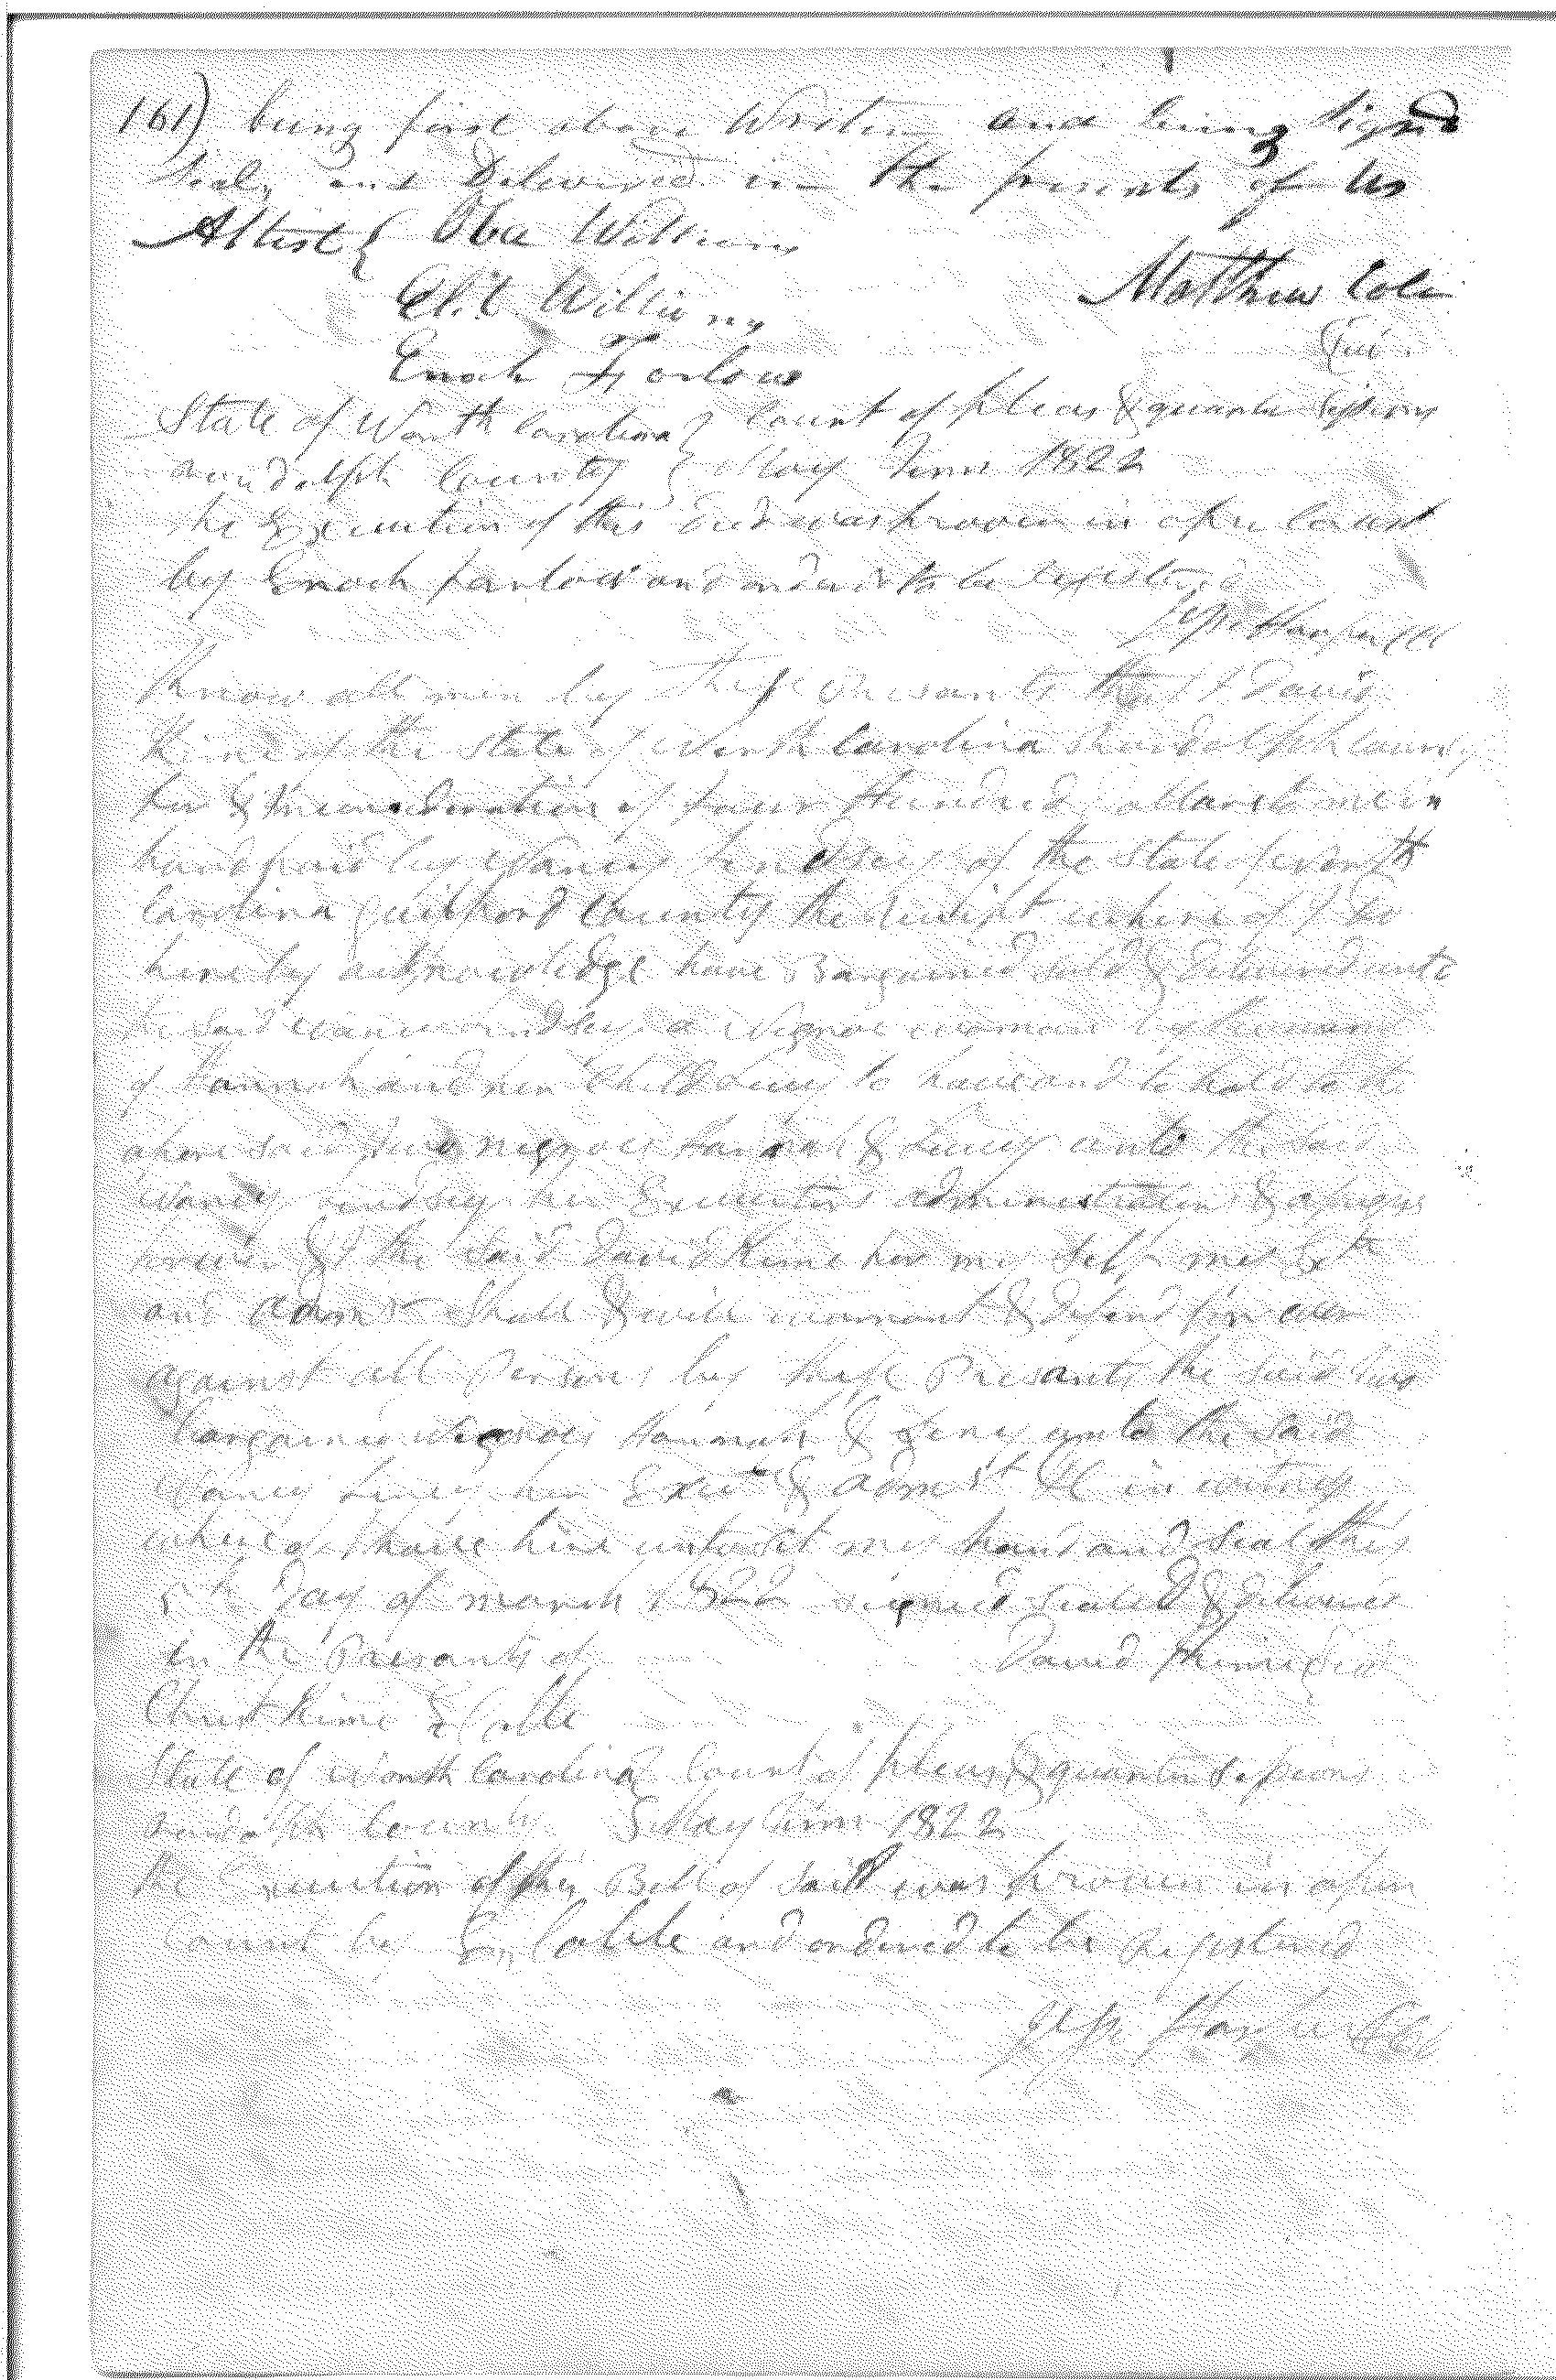 161) being first above Writen and being Signd
Seald and Delivered in the presents of us
Attest { Obed Williams
Matthew Cole
Elit Williams
Enoch Farlow
State of North Carolina } Court of pleas & quarter Sessions
Randolph County } May Term 1822
the Execution of this Deed was proven in open Court
by Enoch farlow and orderd to be Registered
Jesse Harper Clk
Know all men by these presants that I David
Kime of the State of North Carolina Randolph County
for & in consideration of four Hundred dollars to me in
hand paid by Nancy Lindsey of the State of North
Carolina Guilford County the Receipt where of I do
hereby acknowledge have Bargained sold & Delivered unto
the said Nancy Lindsey a Negroe woman by the name
of Hannah and her Child Lucy to have and to hold to the
above said two negroes Hannah & Lucy unto the said
Nancy Lindsey her Executors administrators & assigns
forever & I the said David Kime for my Self my Exts
and Admst Shall & will warrant & defend for ever
against all Persons by these Presants the said two
bargained Negroes Hannah & Lucy unto the said
Nancy her Exets & Admst &C in witness
where of I have here unto set my hand and Seal this
5th Day of march 1822 signed sealed & delivered
in the Presants of David Kime Seal
Christ Kime &
State of North Carolina } Court of pleas & quarter Sessions
Randolph County } May Term 1822
the Execution of this Bill of Sail was proven in open
Court by and ordered to be Registered
Jesse Harper Clk